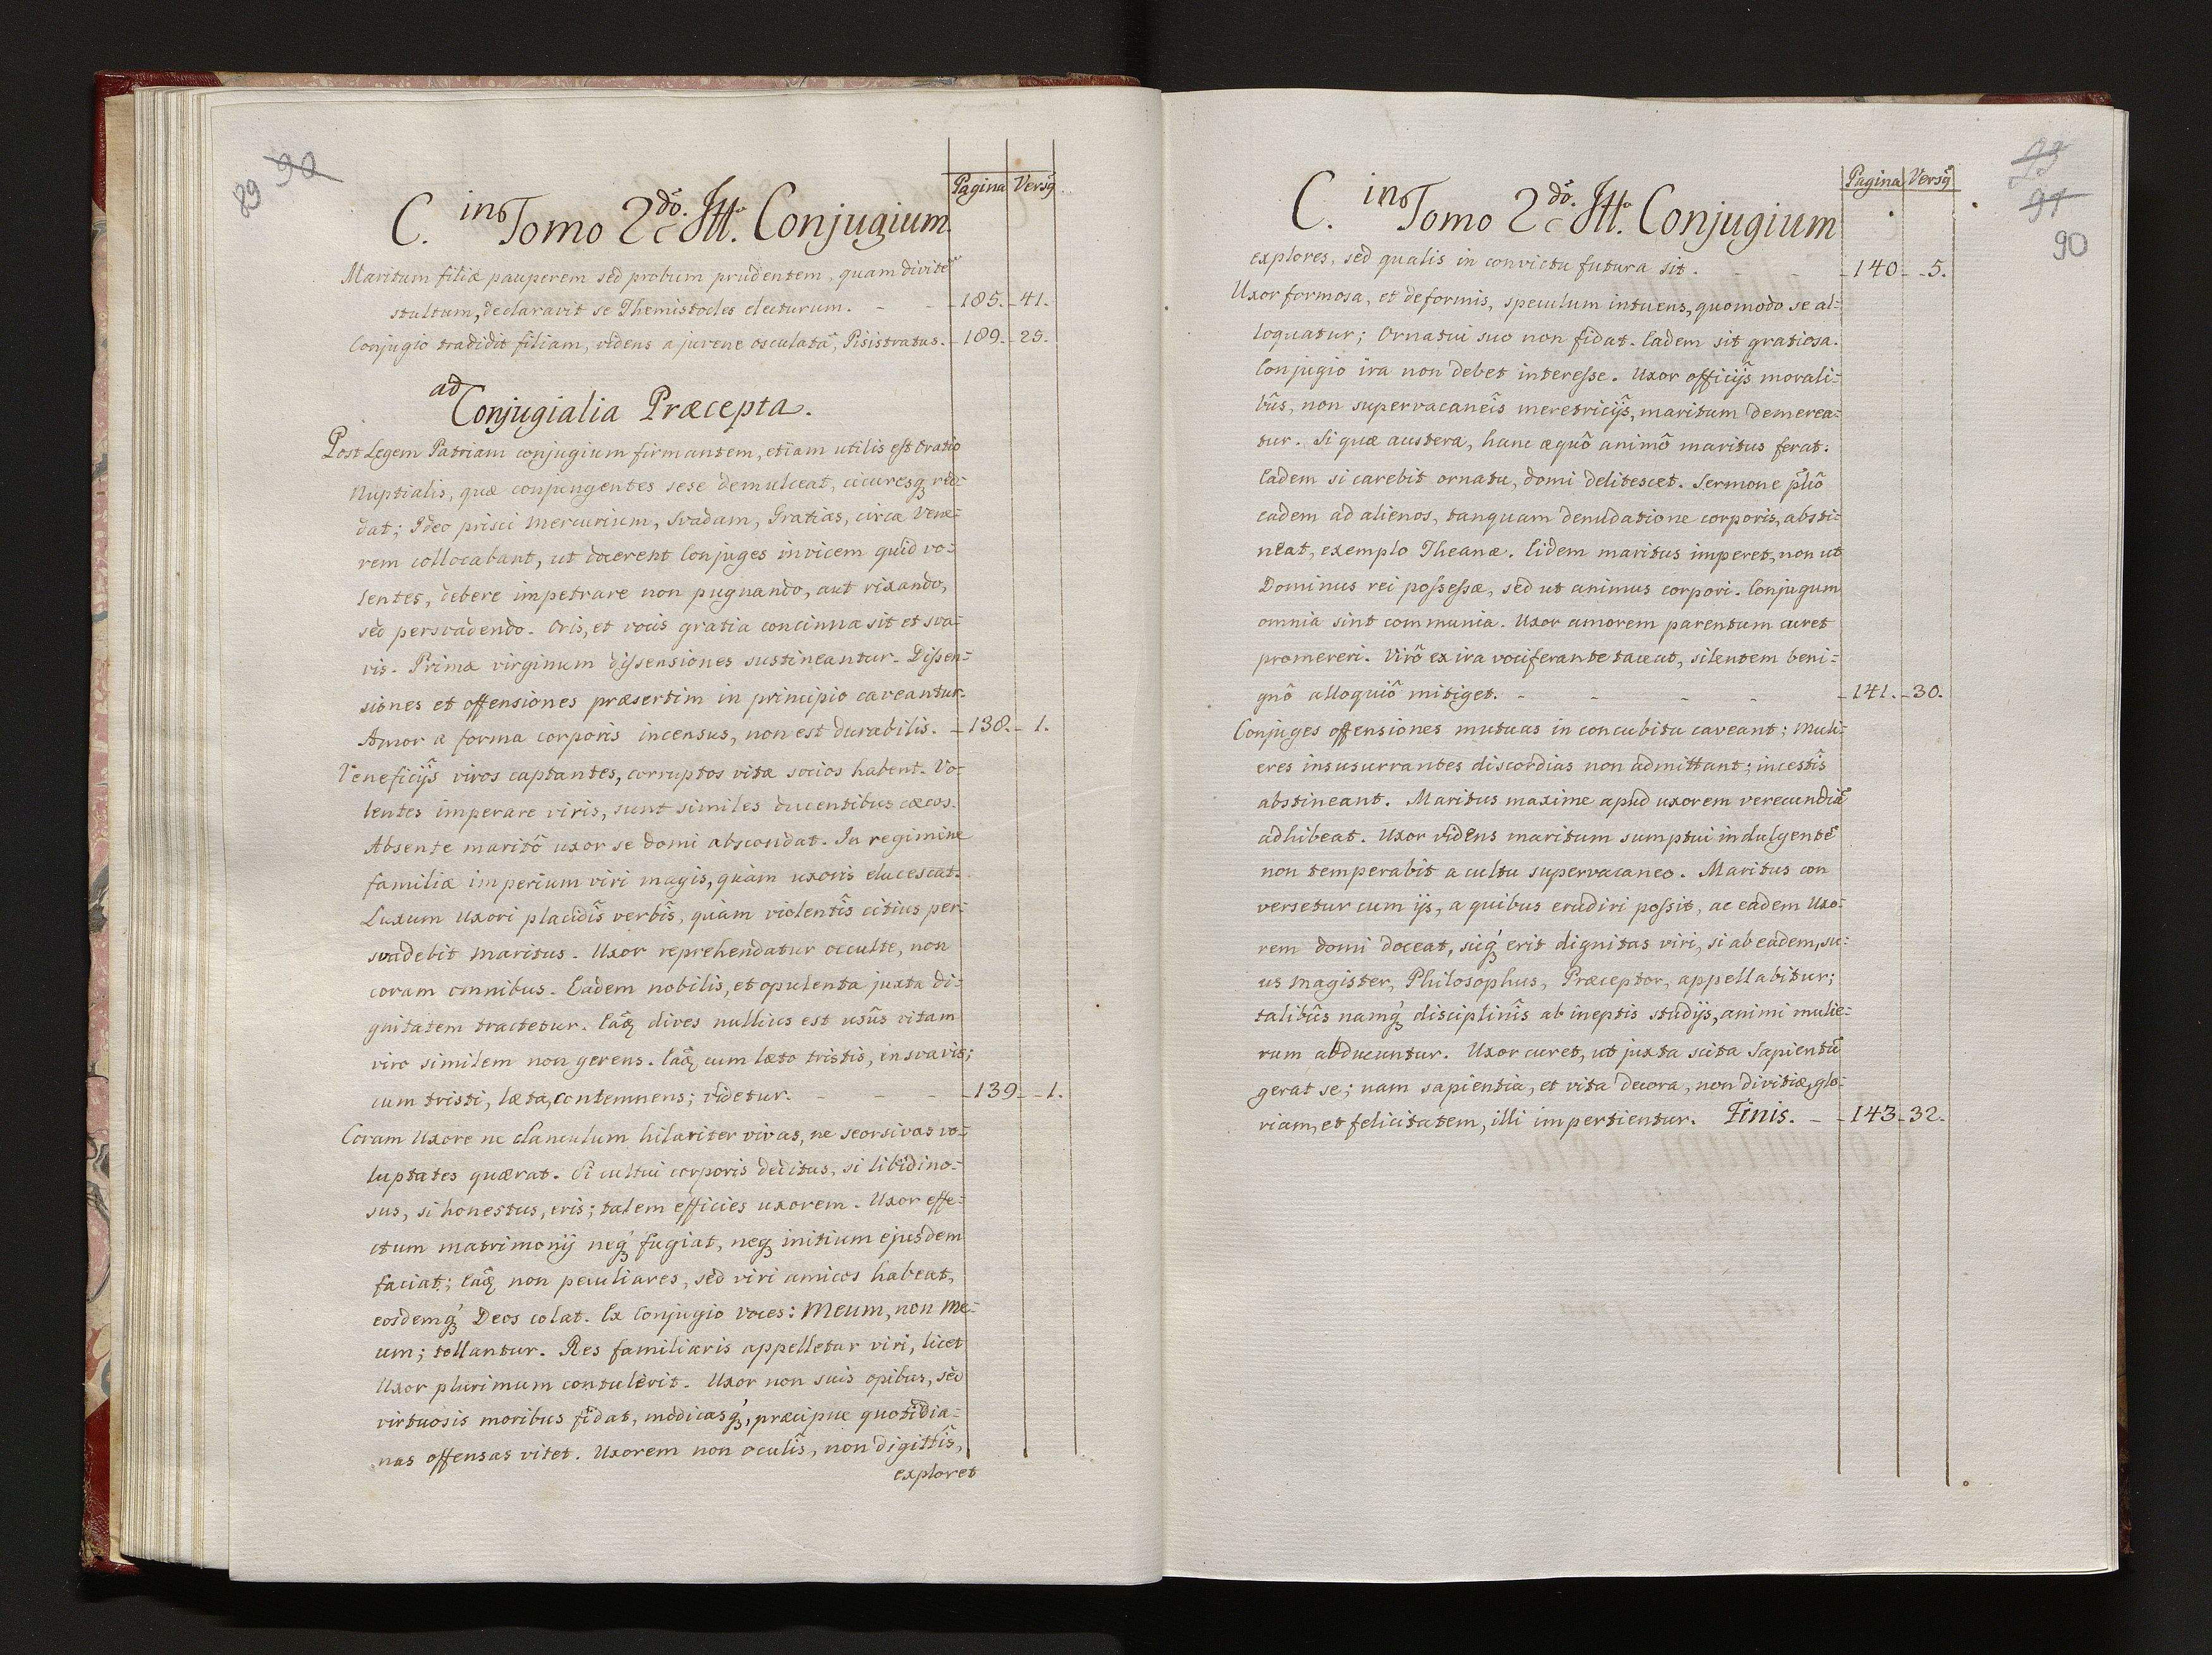 89 90
Pagina Versq̃
C. in Tomo 2do. Conjugium.
Maritum filiæ pauperem sed probum prudentem, quam divitẽ
stultum, declaravit se Themistocles electurum. - - 185. 41.
Conjugio tradidit filiam, videns a juvene osculatã, Pisistratus. 189. 25.
ad
Conjugialia Præcepta.
Post Legem Patriam conjugium firmantem, etiam utilis est Oratio
Nuptialis, quæ conjungentes sese demulceat, cicuresq̨ red:
dat; Ideo prisci Mercurium, Svadam, Gratias, circa Vene:
rem collocabant, ut docerent Conjuges invicem quid vo:
lentes, debere impetrare non pugnando, aut rixando,
sed persvadendo. Oris, et vocis gratia concinna sit et sva:
vis. Primæ virginum dissensiones sustineantur. Dissen:
siones et offensiones præsertim in principio caveantur.
Amor a forma corporis incensus, non est durabilis. 138. 1.
Veneficijs̃ viros captantes, corruptos vitæ socios habent. Vo:
lentes imperare viris, sunt similes ducentibus cæcos.
Absente maritô uxor se domi abscondat. In regimine
familiæ imperium viri magis, quàm uxoris elucescat.
Luxum uxori placidîs verbîs, quàm violentîs citius per:
svadebit Maritus. Uxor reprehendatur occulte, non
coram omnibus. Eadem nobilis, et opulenta juxta di:
gnitatem tractetur. Eâq̨ dives nullius est usûs vitam
viro similem non gerens. Eâq̨ cum læto tristis, insvavis;
cum tristi, læta, contemnens; videtur. - - - 139. 1.
Coram Uxore ne clanculum hilariter vivas, ne seorsivas vo:
luptates quærat. Si cultui corporis deditus, si libidino:
sus, si honestus, eris; talem efficies uxorem. Uxor effe:
ctum matrimonij neq̨ fugiat, neq̨ initium ejusdem
faciat; Eâq̨ non peculiares, sed viri amicos habeat,
eosdemq̨ Deos colat. Ex Conjugio voces: Meum, non Me:
um; tollantur. Res familiaris appelletur viri, licet
Uxor plurimum contulerit. Uxor non suis opibus, sed
virtuosis moribus fidat, modicasq̨, præcipue quotidia:
nas offensas vitet. Uxorem non oculîs, non digittîs,
exploret
93 91 90
Pagina Versq̃
C. in Tomo 2do. Conjugium
explores, sed qualis in convictu futura sit. 140. 5.
Uxor formosa, et deformis, speculum intuens, quomodo se al:
loquatur; Ornatui suo non fidat. Eadem sit gratiosa.
Conjugio ira non debet interesse. Uxor officijs̃ morali:
bûs, non supervacaneîs meretricijs̃, maritum demerea:
tur. Si quæ austera, hanc æquô animô maritus ferat.
Eadem si carebit ornatu, domi delitescet. Sermone
eadem ad alienos, tanquam denudatione corporis, absti:
neat, exemplo Theanæ. Eidem maritus imperet, non ut
Dominus rei possessæ, sed ut animus corpori. Conjugum
omnia sint communia. Uxor amorem parentum curet
promereri. Virô ex ira vociferante taceat, silentem beni:
gnô alloquiô mitiget. - - - - 141. 30.
Conjuges offensiones mutuas in concubitu caveant; Muli:
eres insusurrantes discordias non admittant; incestîs
abstineant. Maritus maxime apud uxorem verecundiã
adhibeat. Uxor videns maritum sumptui indulgentẽ
non temperabit a cultu supervacaneo. Maritus con
versetur cum ijs, a quibus erudiri possit, ac eadem Uxo:
rem domi doceat, sicq̨ erit dignitas viri, si ab eadem, su:
us Magister, Philosophus, Præceptor, appellabitur;
talibûs namq̨ disciplinîs ab ineptis studijs, animi mulie:
rum abducuntur. Uxor curet, ut juxta scita Sapientũ
gerat se; nam sapientia, et vita decora, non divitiæ, glo:
riam, et felicitatem, illi impertientur. Finis. - 143. 32.